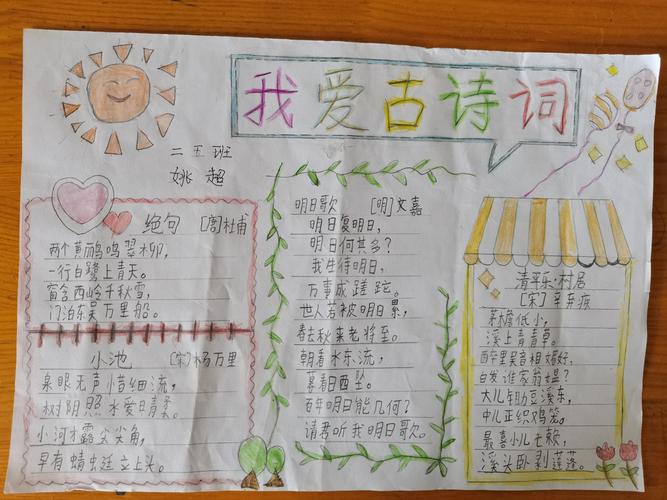 我爱古诗词
二五班
姚超
绝句 [唐]杜甫
两个黄鹂鸣翠柳,
一行白鹭上青天。
窗含西岭千秋雪,
门泊东吴万里船。
小池 [宋]杨万里
泉眼无声惜细流,
树阴照水爱晴柔。
小河才露尖尖角,
早有蜻蜓立上头。
明日歌 [明]文嘉
明日复明日,
明日何其多?
我生待明日,
万事成蹉跎。
世人若被明日累,
春去秋来老将至。
朝看水东流,
暮看日西坠。
百年明日能几何?
请君听我明日歌。
清平乐·村居
[宋]辛弃疾
茅檐低小,
溪上青青草。
醉里吴音相媚好,
白发谁家翁媪?
大儿锄豆溪东,
中儿正织鸡笼。
最喜小儿亡赖,
溪头卧剥莲蓬。